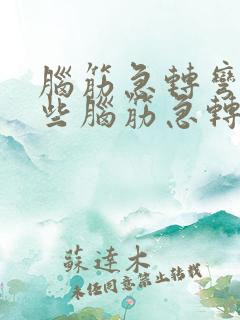 腦筋急轉彎
些腦筋急轉
蘇達木
未經同意禁止轉載